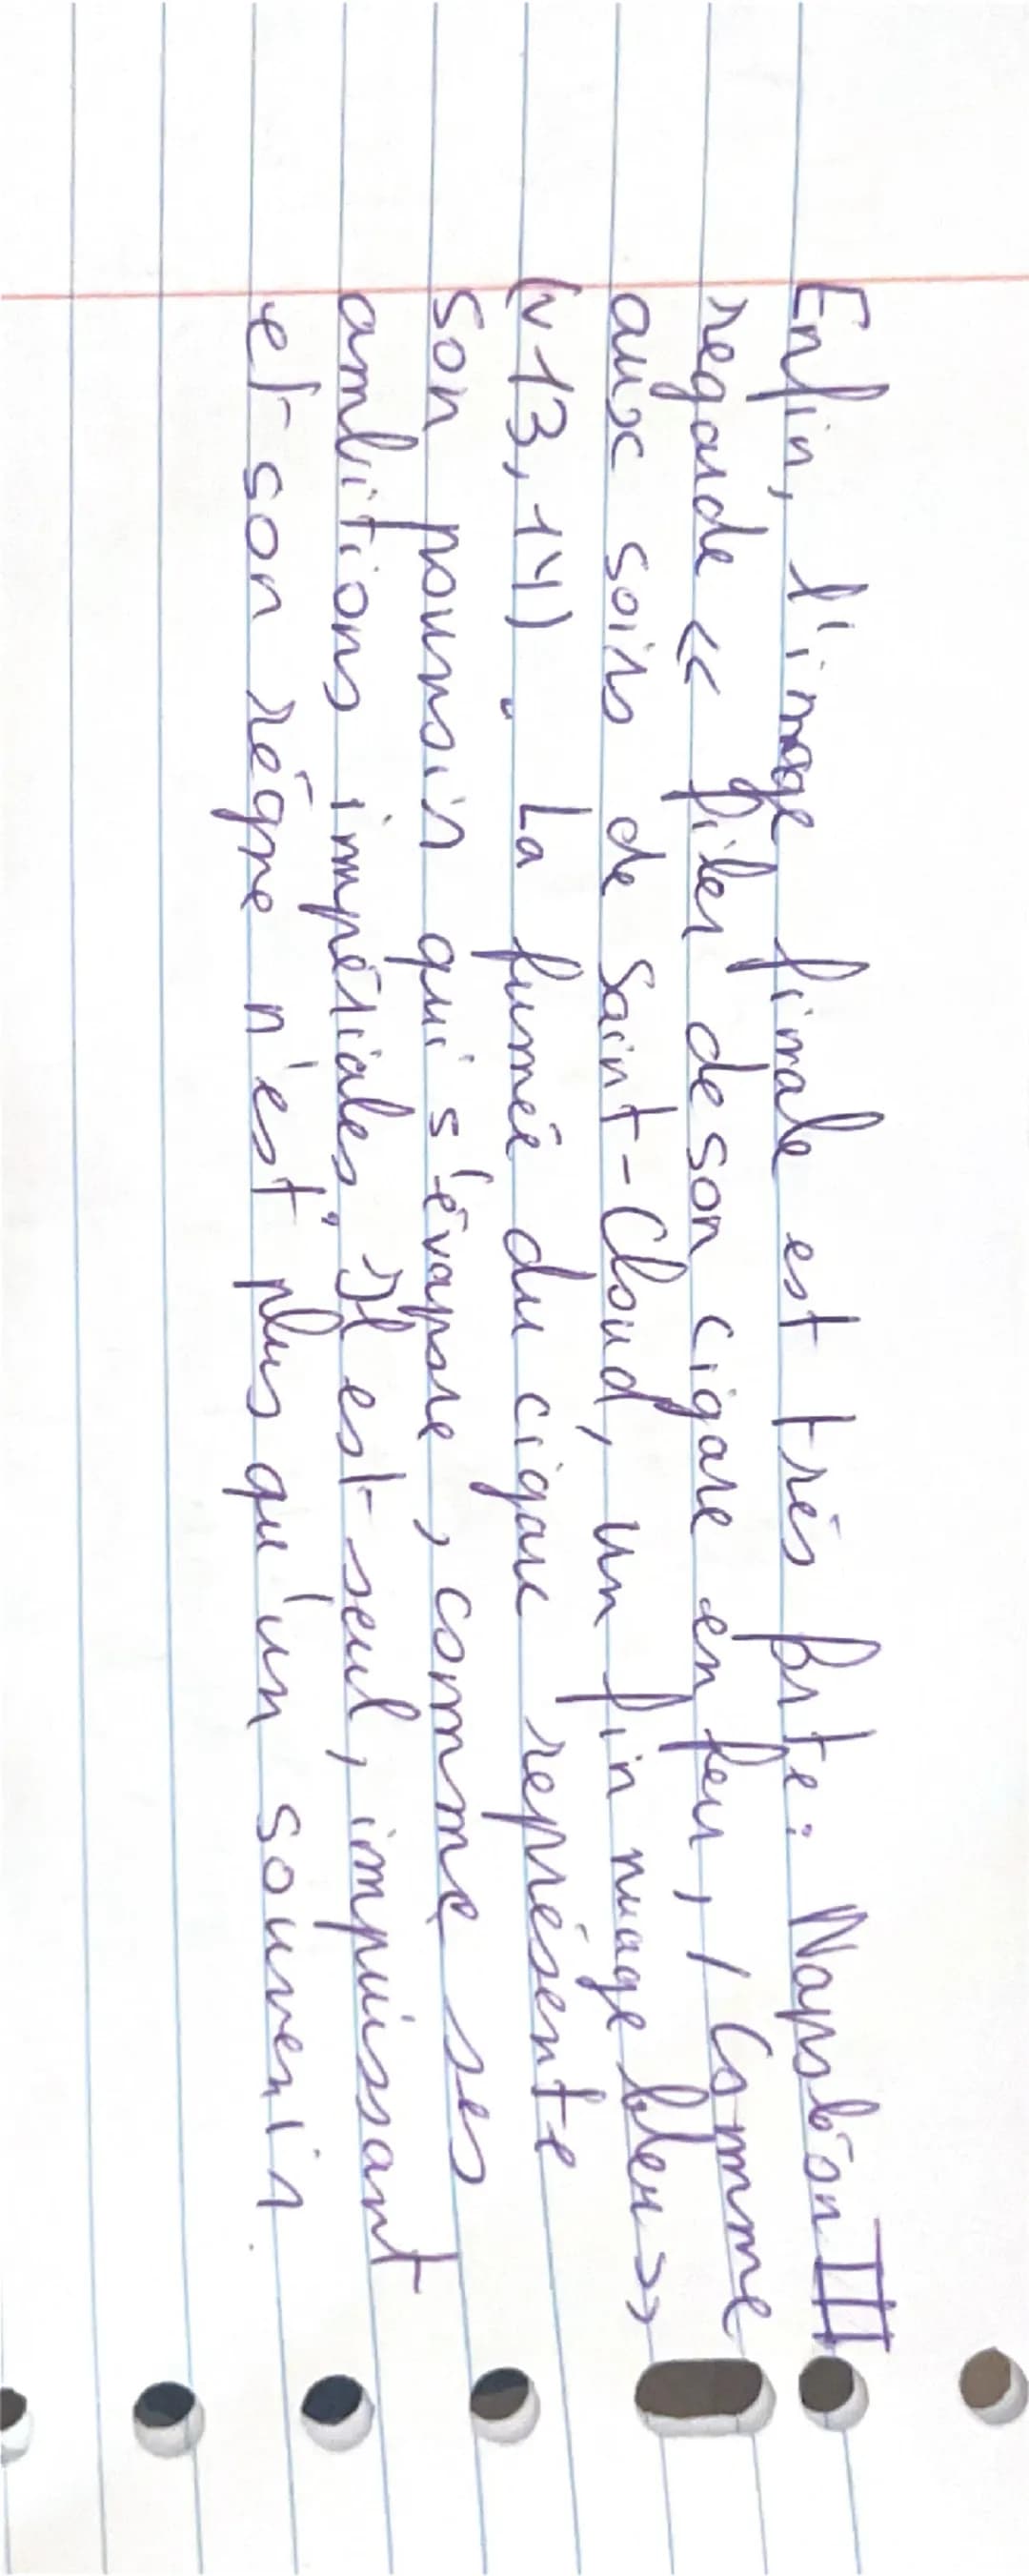 Enfin, l'image finale est très forte : Napoléon III
regarde « filer de son cigare en feu, / Comme
aux soirs de Saint-Cloud, un fin nuage bleu »
(v 13, 14). La fumée du cigare représente
son pouvoir qui s'évapore, comme ses
ambitions impériales. Il est seul, impuissant
et son règne n'est plus qu'un souvenir.